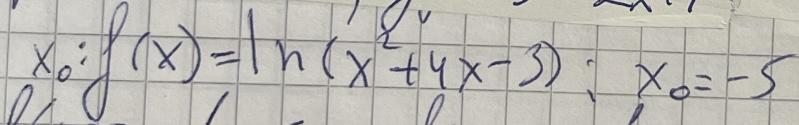 x₀: f(x) = ln(x² + 4x - 3); x₀ = -5